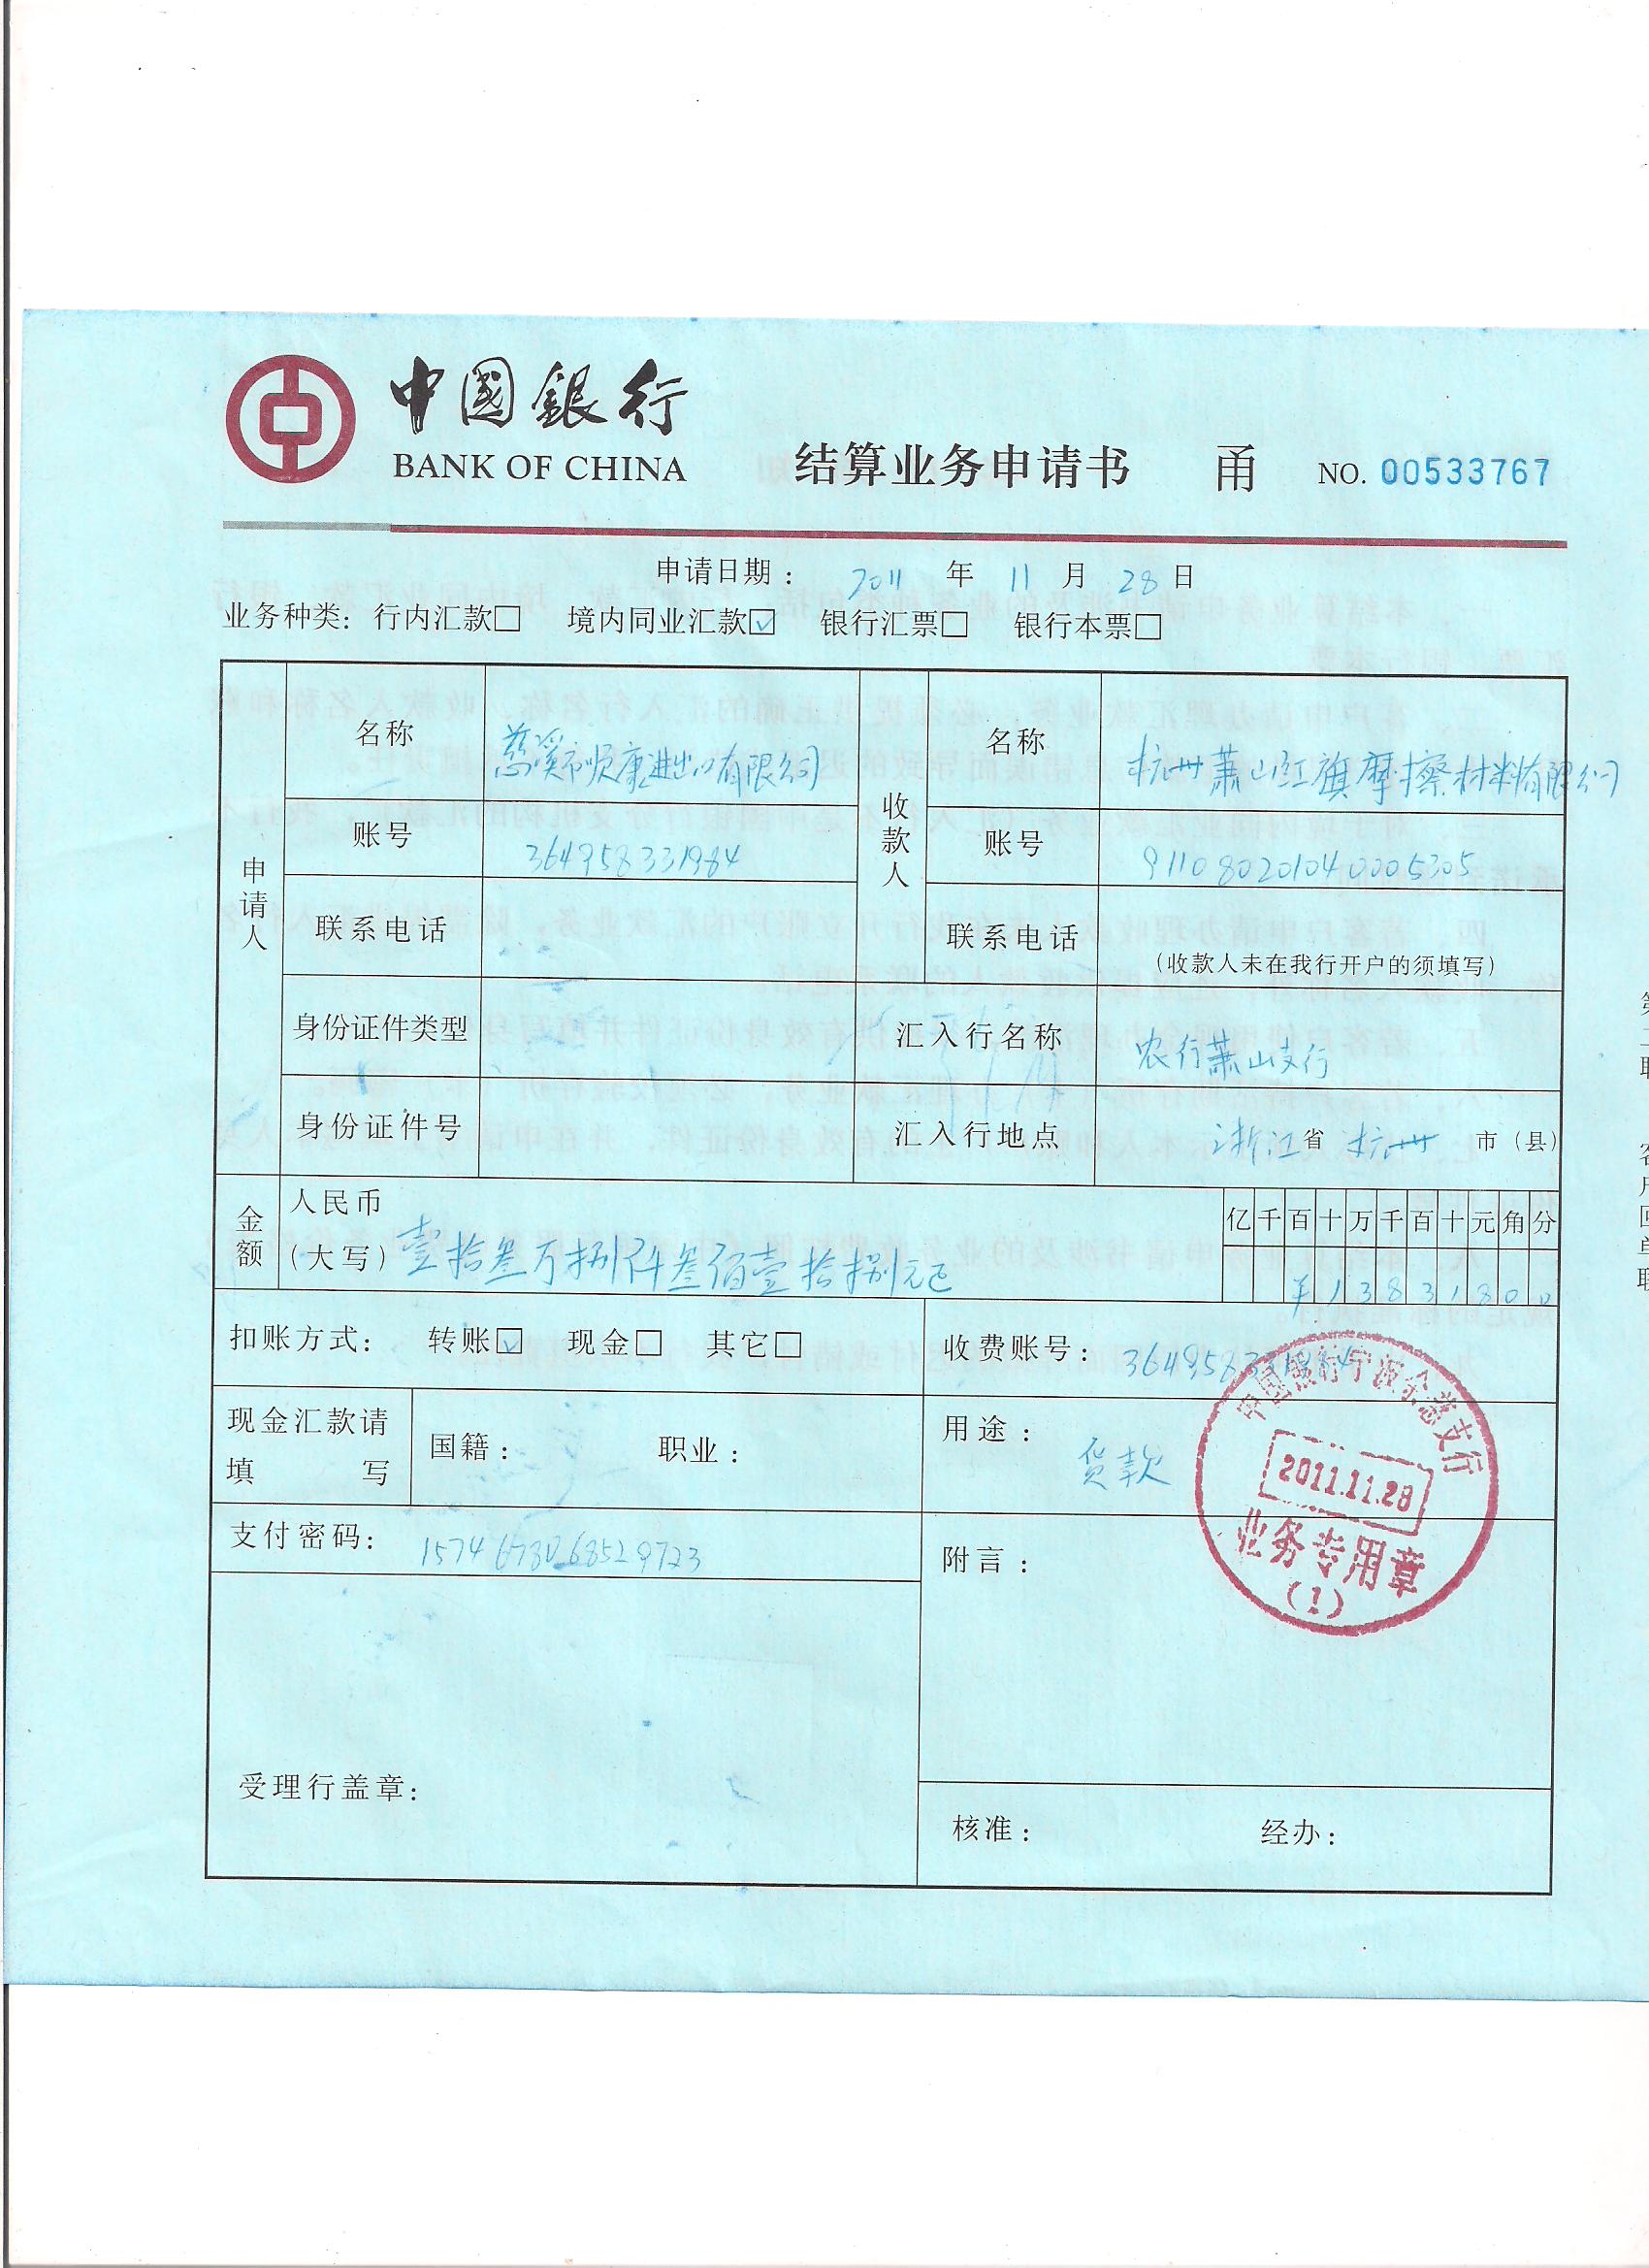 中國銀行
BANK OF CHINA
结算业务申请书 甬 NO. 00533767
申请日期： 2011 年 11 月 28 日
业务种类：行内汇款□ 境内同业汇款☑ 银行汇票□ 银行本票□
申请人
名称 慈溪市顺康进出口有限公司
收款人
名称 杭州萧山红旗摩擦材料有限公司
账号 364958331984
账号 911080201040005305
联系电话
联系电话
（收款人未在我行开户的须填写）
身份证件类型
汇入行名称 农行萧山支行
身份证件号
汇入行地点 浙江省 杭州 市（县）
金额
人民币
（大写）壹拾叁万捌仟叁佰壹拾捌元正
亿千百十万千百十元角分
¥13831800
扣账方式： 转账☑ 现金□ 其它□
收费账号：364958331984
现金汇款请
填 写
国籍： 职业：
用途： 货款
中国银行宁波余慈支行
2011.11.28
业务专用章
(1)
支付密码： 1574 6780 6852 9723
附言：
受理行盖章：
核准： 经办：